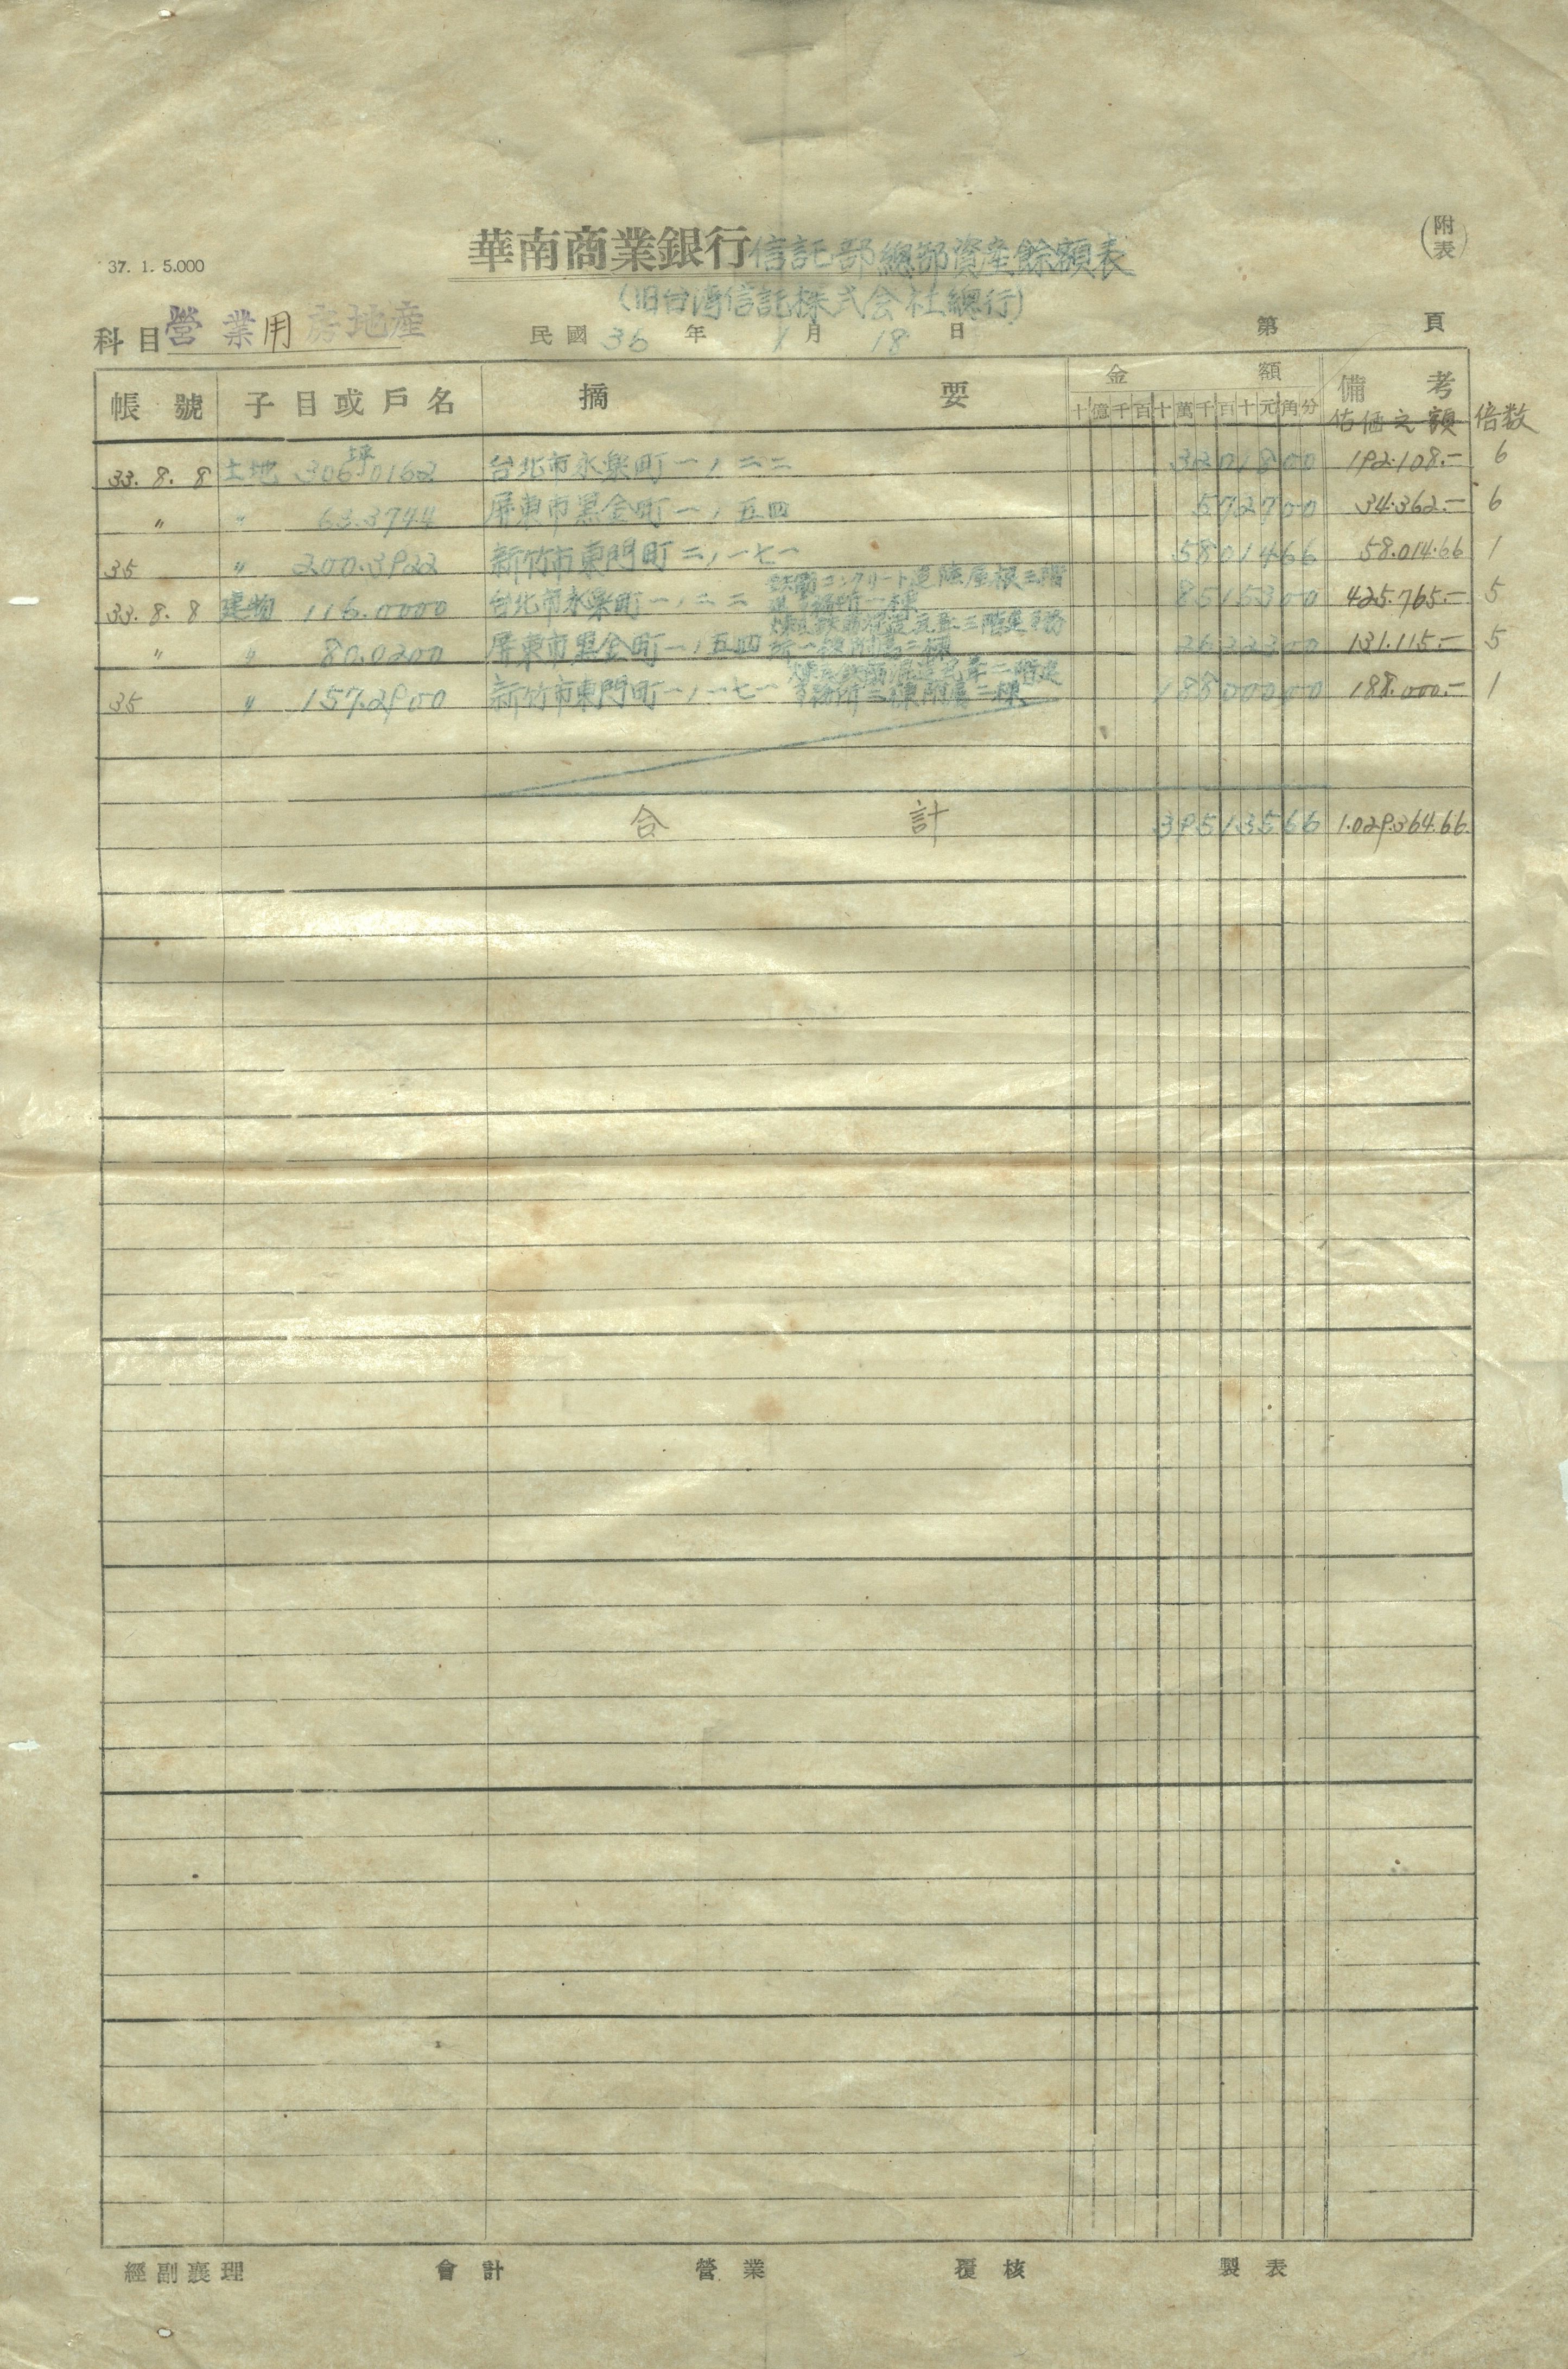 (附表)
37. 1. 5.000
華南商業銀行信託部總部資產餘額表
(旧台湾信託株式会社總行)
科目 營業用房地產 民國 36 年 1 月 18 日 第 頁
帳號 子目或戶名 摘要 金額 備考
十億千百十萬千百十元角分 估価之額 倍数
33.8.8 土地 306.0162坪 台北市永樂町一ノ二二 3201800 192.108.— 6
〃 〃 63.3744 屏東市黒金町一ノ五四 572700 34.362.— 6
35 〃 200.3922 新竹市東門町二ノ一七一 5801466 58.014.66 1
鉄筋コンクリート造陸屋根三階
33.8.8 建物 116.0000 台北市永樂町一ノ二二 事務所一棟 8515300 425.765.— 5
煉瓦鉄筋混造瓦葺三階建事務
〃 〃 80.0200 屏東市黒金町一ノ五四 所一棟附属二棟 2622300 131.115.— 5
煉瓦鉄筋混造瓦葺二階建
35 〃 157.2900 新竹市東門町一ノ一七一 事務所二棟附属二棟 18800000 188.000.— 1
合計 39513566 1.029.364.66
經副襄理 會計 營業 覆核 製表